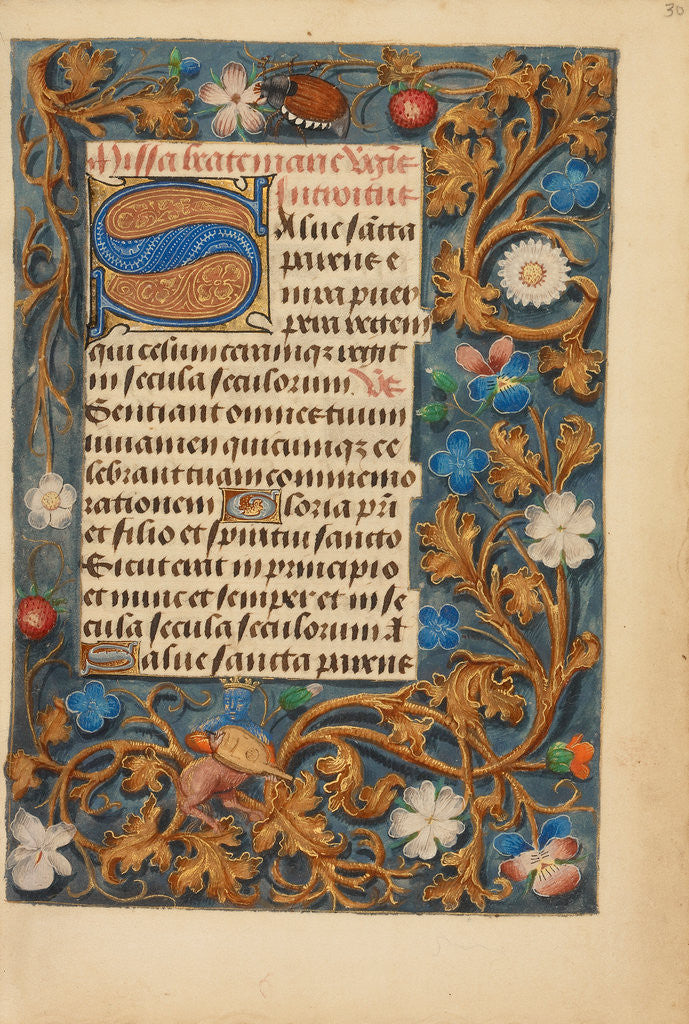 30
Missa beate marie v̄gīē
Introitus
Salue sācta
parens e
nixa puer
pera regem
qui celum terramqz regit
in secula seculorum. Vs̄
Sentiant omnes tuum
iuuamen quicumqz ce
lebrant tuam commemo
rationem Gloria pr̄i
et filio et spiritui sancto
Sicut erat in principio
et nunc et semper et in se
cula secula seculorum A
Salue sancta parens